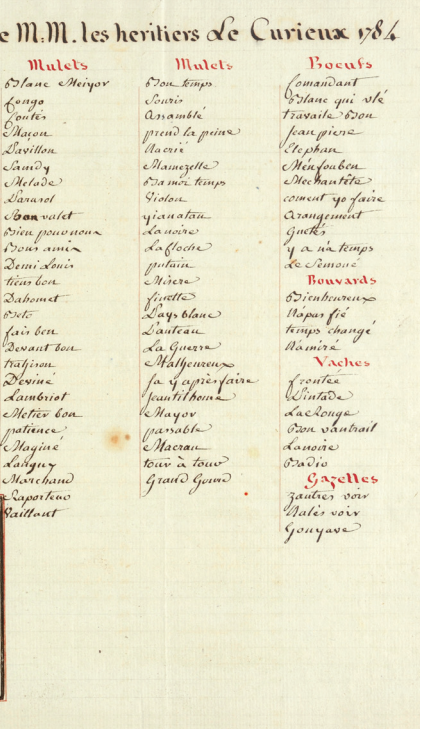 e M.M. les heritiers Le Curieux 1784
Mulets
Blanc Meiyor
Congo
foutés
Macon
Pavillon
Sandy
Melade
Parasol
Bon valet
Bien pouvnous
Bons amis
Demi Louis
tiens bon
Dahomet
fais bon
Devant bon
trahison
Devine
Lambriot
Metier bon
patience
Maginé
Languy
Marchand
Raporteur
Vaillant
Mulets
Bon temps
Souris
Assamblé
prend la peine
Sacrié
Mamezelle
Bamoir temps
Violon
yianatau
Lanoire
La floche
putain
Misere
finette
Pays blanc
Panteau
La Guerre
Malheureux
fa y apres faire
Jeantilhome
Mayor
passable
Macrau
tour à tour
Grand Gourd
Boeufs
Comandant
Blanc qui vlé
travaile Bon
Jean piere
Elephan
Ménfouben
Mechantête
coment yo faire
Arangement
Guetés
y a na temps
Le Semoué
Bouvards
Bienheureux
Napas fié
temps changé
Namiré
Vaches
frontée
Pintade
La Rouge
Bon vantrail
Lanoire
Badio
Gazelles
zautres voir
Nalés voir
Gouyave